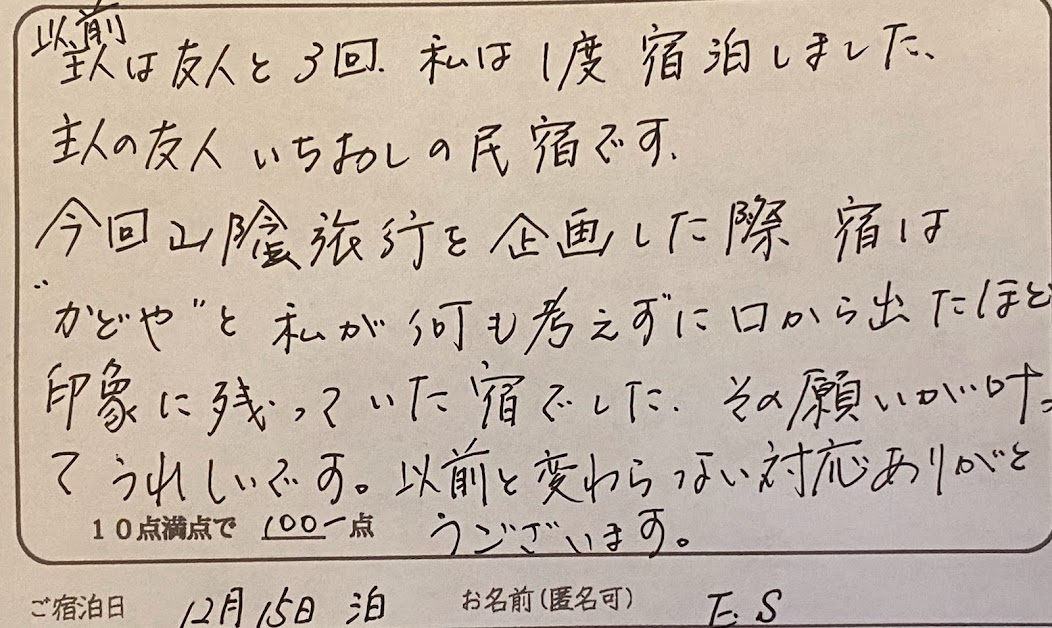 以前
主人は友人と3回、私は1度 宿泊しました、
主人の友人 いちおしの民宿です、
今回山陰旅行を企画した際 宿は
“かどや”と 私が何も考えずに口から出たほど
印象に残っていた宿でした、その願いが叶っ
てうれしいです。以前と変わらない対応ありがと
うございます。
10点満点で 100点
ご宿泊日 12月15日 泊 お名前(匿名可) E.S